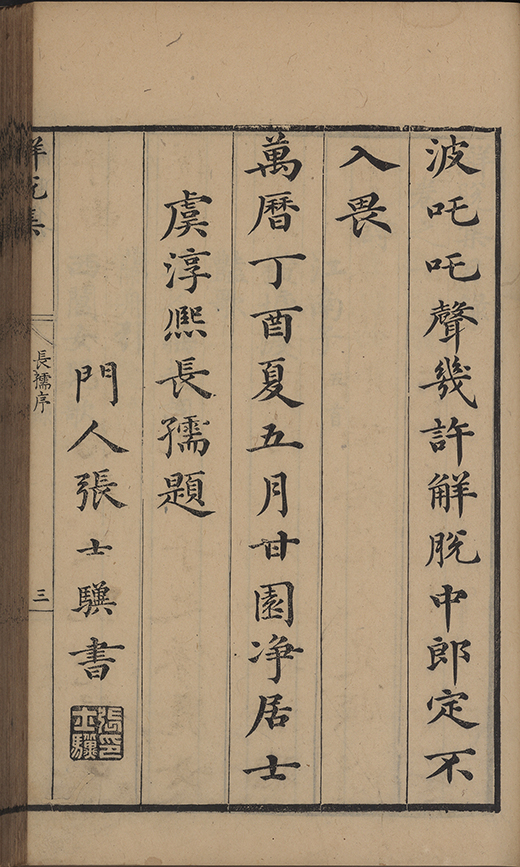 波吒吒聲幾許解脫中郎定不
入畏
萬曆丁酉夏五月甘園淨居士
虞淳熙長孺題
門人張士驥書
張士驥印
解脫集
長孺序
三